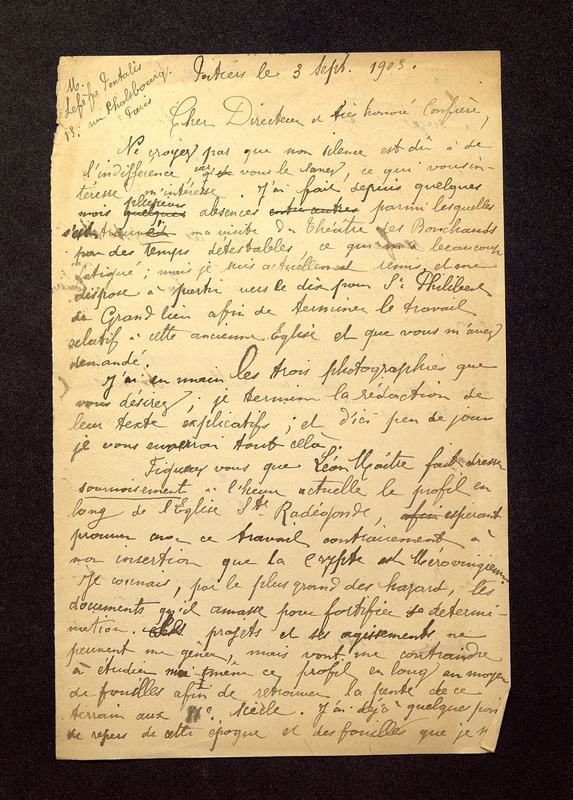 M.
Lefèfre Pontalis
13. rue Phalsbourg.
Paris
Poitiers le 3 Sept. 1903.
Cher Directeur et très honoré Confrère,
Ne croyez pas que mon silence est dû à de
l'indifférence car vous le savez, ce qui vous in-
téresse m'intéresse. J'ai fait depuis quelques
mois quelques plusieurs absences entre autres parmi lesquelles
ma visite du théâtre des Bouchauds
par des temps détestables ce qui m'a beaucoup
fatigué ; mais je suis actuellement remis et me
dispose à partir vers le dix pour St Philibert
de Grand lieu afin de terminer le travail
relatif à cette ancienne Eglise et que vous m'avez
demandé.
J'ai en main les trois photographies que
vous désirez ; je termine la rédaction de
leur texte explicatifs ; et d'ici peu de jour
je vous enverrai tout cela.
Figurez vous que Léon Maître fait dresser
sournoisement à l'heure actuelle le profil en
long de l'Eglise Ste Radégonde, afin espérant
prouver avec ce travail contrairement à
mon insertion que la Crypte est Mérovingienne
Je connais, par le plus grand des hazard, les
documents qu'il amasse pour fortifier sa détermi-
nation. Ses projets et ses agissements ne
peuvent me gêner, mais vont me contraindre
à étudier moi même ce profil en long au moyen
de fouilles afin de retrouver la pente de ce
terrain aux siècle. J'ai déjà quelques points
de repers de cette époque et des fouilles que je